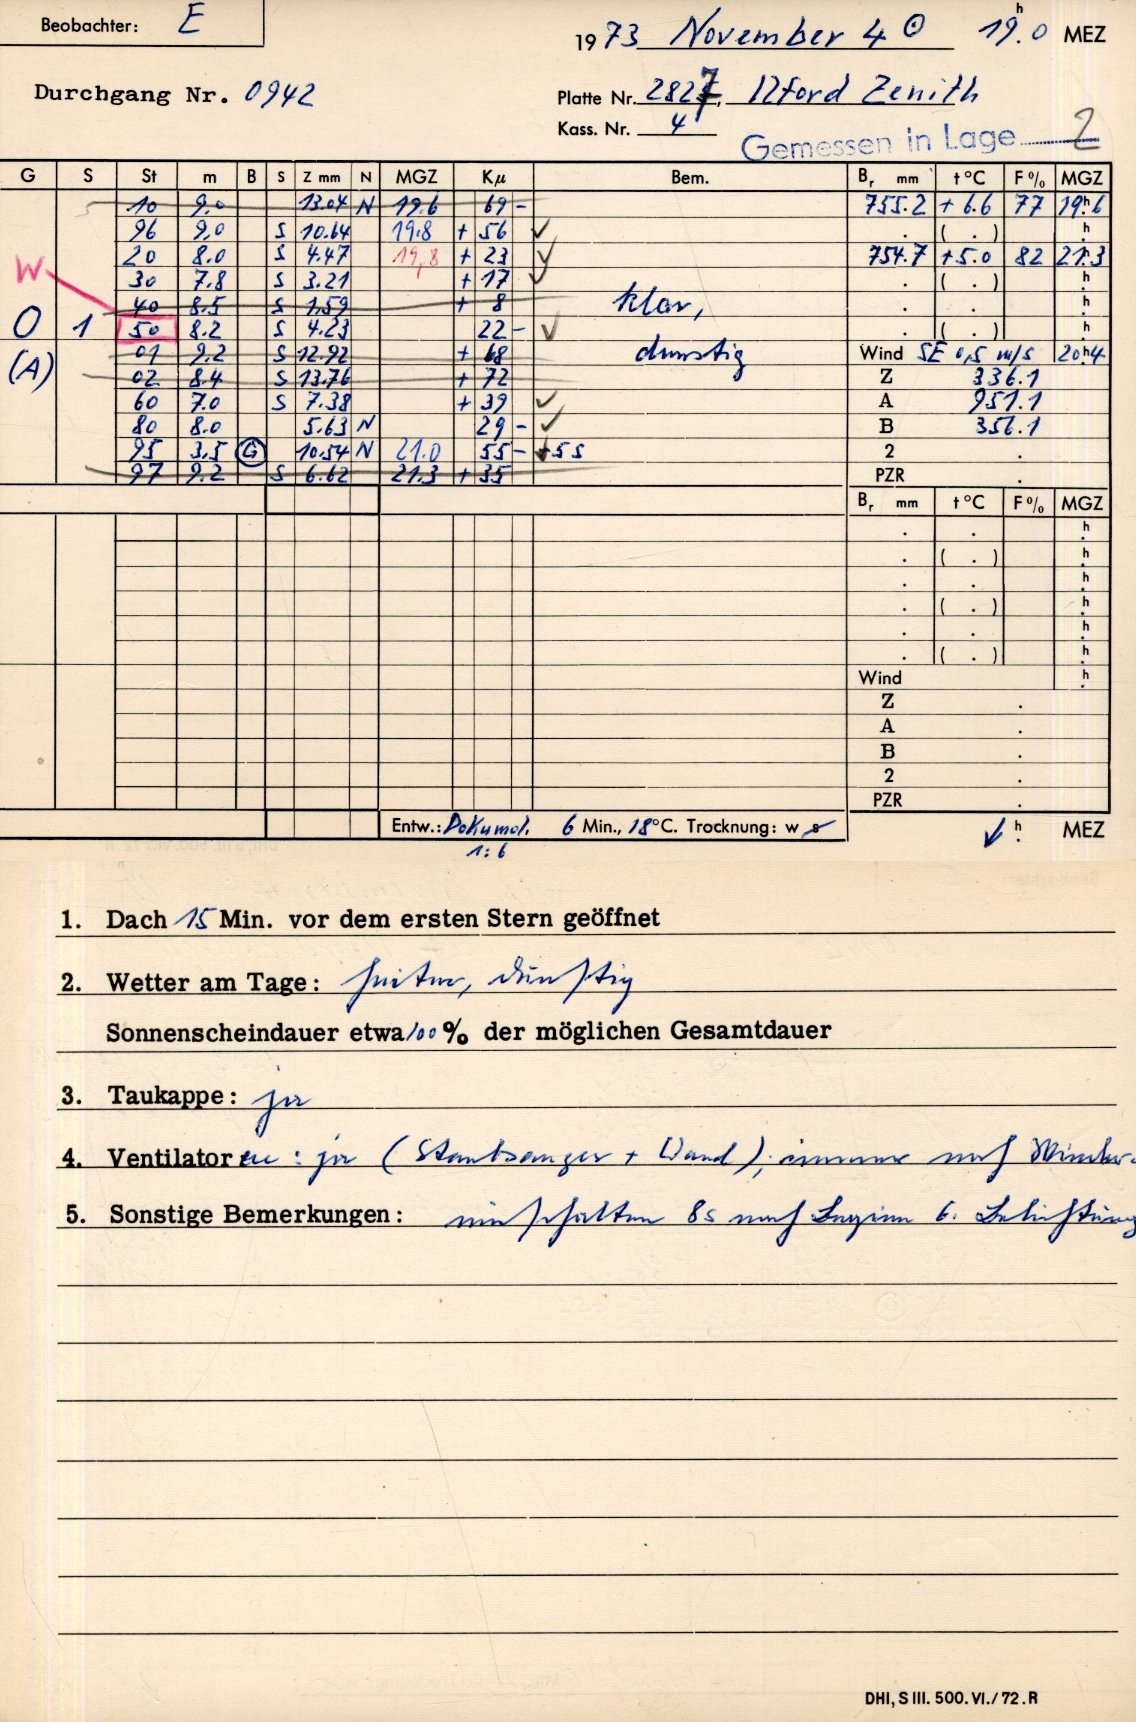 Beobachter: E
1973 November 4 ☉ 19h.0 MEZ
Durchgang Nr. 0942
Platte Nr. 2827, Ilford Zenith
Kass. Nr. 4
Gemessen in Lage 2
G S St m B S Z mm N MGZ Kμ Bem. Br mm t°C F% MGZ
10 9.0 13.04 N 19.6 69 - 755.2 +6.6 77 19h6
96 9.0 S 10.64 19.8 + 56 ✓ . ( . ) h
20 8.0 S 4.47 19,8 + 23 ✓ 754.7 +5.0 82 21h3
W 30 7.8 S 3.21 + 17 ✓ . ( . ) h
40 8.5 S 1.59 + 8 klar, . . h
O 1 50 8.2 S 4.23 22 - ✓ . ( . ) h
(A) 01 9.2 S 12.92 + 68 dunstig Wind SE 0,5 m/s 20h4
02 8.4 S 13.76 + 72 Z 336.1
60 7.0 S 7.38 + 39 ✓ A 951.1
80 8.0 5.63 N 29 - ✓ B 356.1
95 3.5 G 10.54 N 21.0 55 - ✓ +5s 2 .
97 9.2 S 6.62 21.3 + 35 PZR .
Br mm t°C F% MGZ
. . h
. ( . ) h
. . h
. ( . ) h
. . h
. ( . ) h
Wind h
Z .
A .
B .
2 .
PZR .
Entw.: Dokumol. 6 Min., 18°C. Trocknung: w s h. MEZ
1:6
1. Dach 15 Min. vor dem ersten Stern geöffnet
2. Wetter am Tage: heiter, dunstig
Sonnenscheindauer etwa 100 % der möglichen Gesamtdauer
3. Taukappe: ja
4. Ventilatoren: ja (Staubsauger + Wand);
5. Sonstige Bemerkungen: 8s nach Beginn 6. Belichtung
DHI, S III. 500. VI./72. R